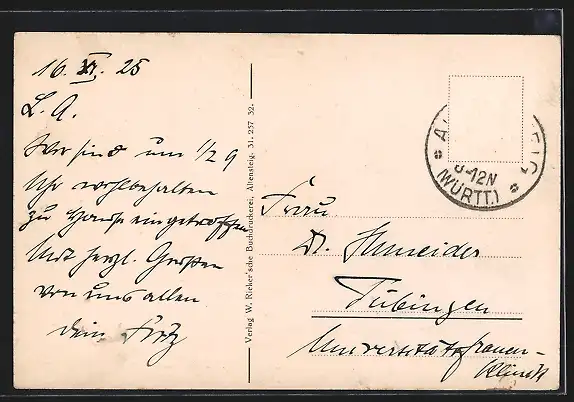 16. XI. 25
L. A.
Wir sind um 1/2 9
Uhr wohlbehalten
zu Hause eingetroffen
Mit herzl. Grüßen
von uns allen
Dein Fritz
Verlag W. Rieker'sche Buchdruckerei, Altensteig. 31. 257 32.
8-12N
(WÜRTT.)
Frau
Dr. Schneider
Tübingen
Universitätsfrauen-
Klinik